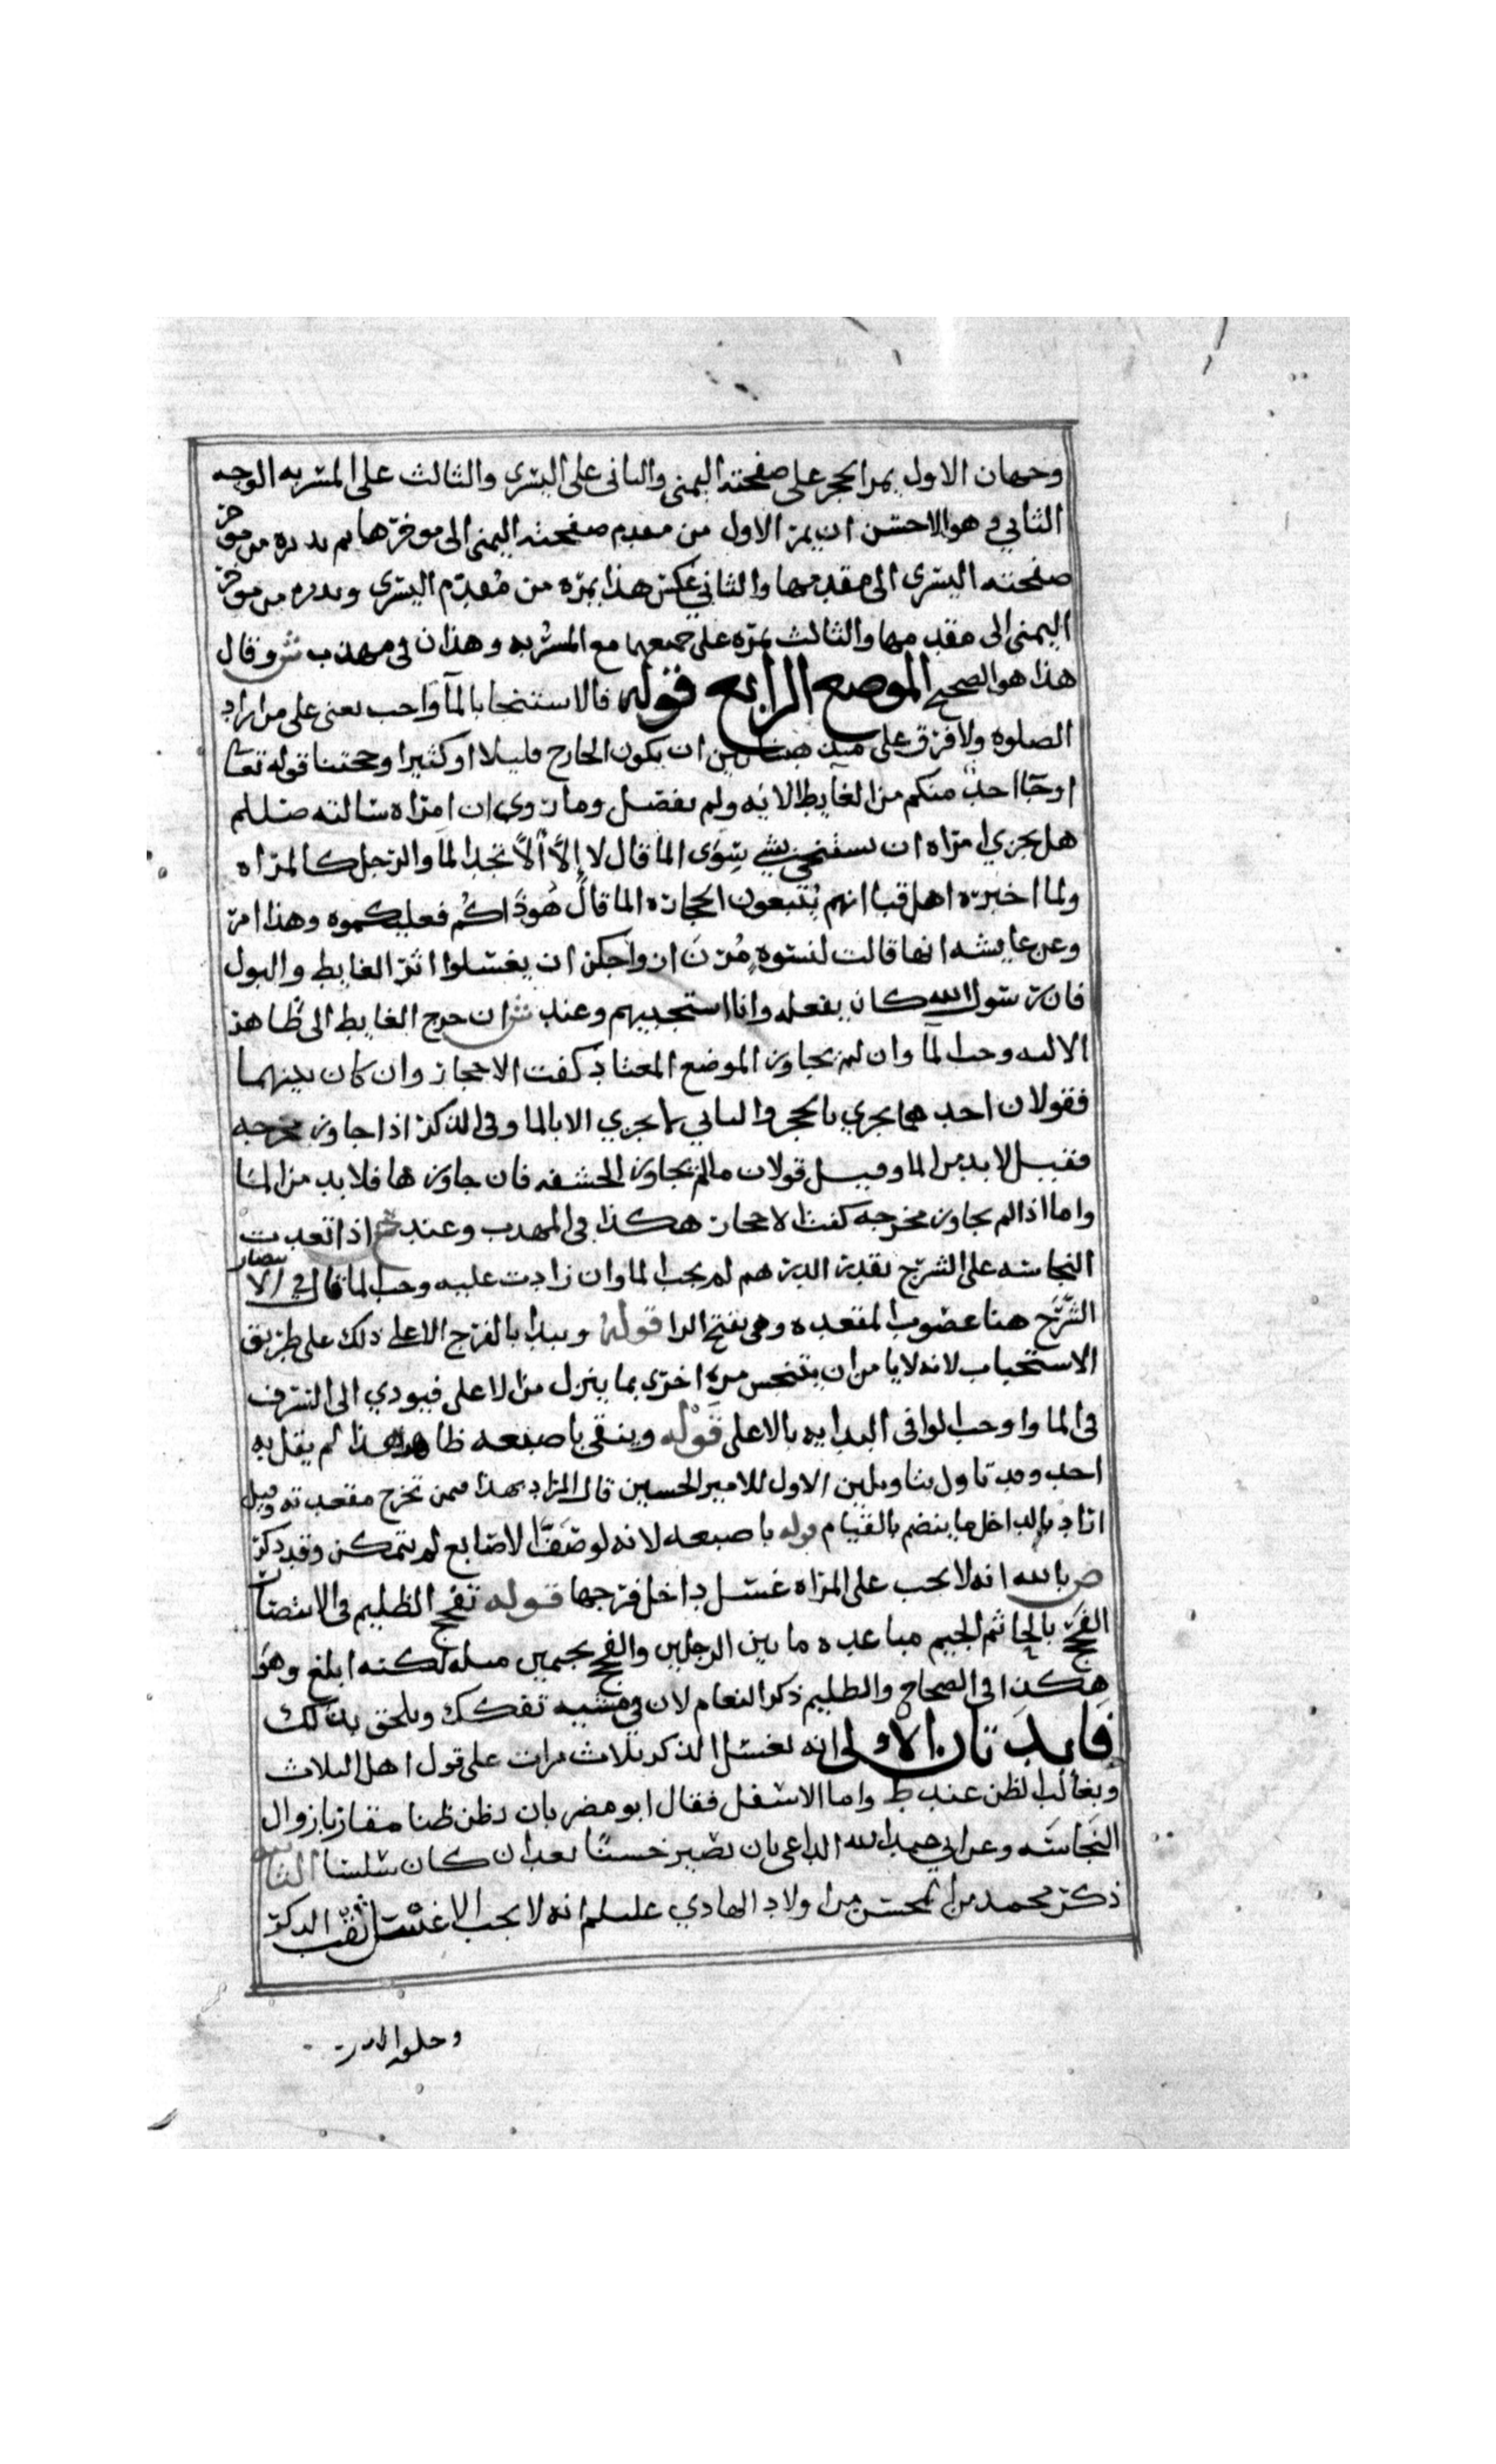 وجهان الاول يمر الحجر على صفحته اليمنى والثاني على اليسرى والثالث على المسربه الوجه
الثاني وهو الاحسن ان يمر الاول من مقدم صفحته اليمنى الى موخرها ثم يديره من موخر
صفحته اليسرى الى مقدمها والثاني عكس هذا يمره من مقدم اليسرى ويديره من موخر
اليمنى الى مقدمها والثالث يمره على جميعها مع المسربه وهذان في مهذب ش وقال
هذا هو الصحيح الموضع الرابع قوله فالاستنجا بالمآ واجب يعني على من اراد
الصلوه ولا فرق على بين ان يكون الخارج قليلا او كثيرا وحجتنا قوله تعا
او جا احد منكم من الغايط الايه ولم يفصل وما روي ان امراه سالته صللم
هل يجزي امراه ان تستنجي بشي سوى الما قال لا إلاَّ ألاَّ تجد الما والرجل كالمراه
ولما اخبره اهل قبا انهم يُتبعون الحجاره الما قال هُوذاكُم فعليكموه وهذا امر
وعن عايشه انها قالت لنسوه مُرنَ ازواجكن ان يغسلوا اثر الغايط والبول
فان رسول الله كان يفعله وانا استحييهم وعند ش ان خرج الغايط الى ظاهر
الاليه وجب الما وان لم يجاوز الموضع المعتاد كفت الاحجار وان كان بينهما
فقولان احدهما يجزي بالحجر والثاني لا يجزي الا بالما وفي الذكر اذا جاوز مخرجه
فقيل لا بد من الما وقيل قولان ما لم يجاوز الحشفه فان جاوزها فلا بد من الما
واما اذا لم يجاوز مخرجه كفت الاحجار هكذا في المهذب وعند ح اذا تعدت
النجاسه على الشرج بقدر الدرهم لم يجب الما وان زادت عليه وجب الما قال في الانتصار
الشَّرَج هنا عضو المقعده وهي بفتح الرا قوله ويبدا بالفرج الاعلى ذلك على طريق
الاستحباب لانه لا يامن ان يتنجس مره اخرى بما ينزل من الاعلى فيودي الى السرف
في الما واوجب الوافي البدايه بالاعلى قَوْله وينقي باصبعه ظاهر هذا لم يقل به
احد وقد تاول بتاويلين الاول للامير الحسين قال المراد بهذا فيمن تخرج مقعدته وقيل
اراد بالداخل ما ينضم بالقيام قوله باصبعه لانه لو صَفَّ الاصابع لم يتمكن وقد ذكر
ض بالله انه لا يجب على المراه غسل داخل فرجها قوله تفحج الظليم في الانتصار
الفحج بالحا ثم الجيم مباعده ما بين الرجلين والفجج بجيمين مثله لكنه ابلغ وهو
هكذا في الصحاح والظليم ذكر النعام لان في مشيه تفكك ويلحق بذلك
فايدتان الاولى انه يغسل الذكر ثلاث مرات على قول اهل الثلاث
وبغالب الظن عند ط واما الاسفل فقال ابو مضر بان يظن ظنا مقاربا بزوال
النجاسَه وعن ابي عبد الله الداعي بان يصير خشنًا بعد ان كان سلسا الثانيه
ذكر محمد بن المحسن من اولاد الهادي عليلم انه لا يجب الا غسل ثقب الذكر
وحلقه الدبر